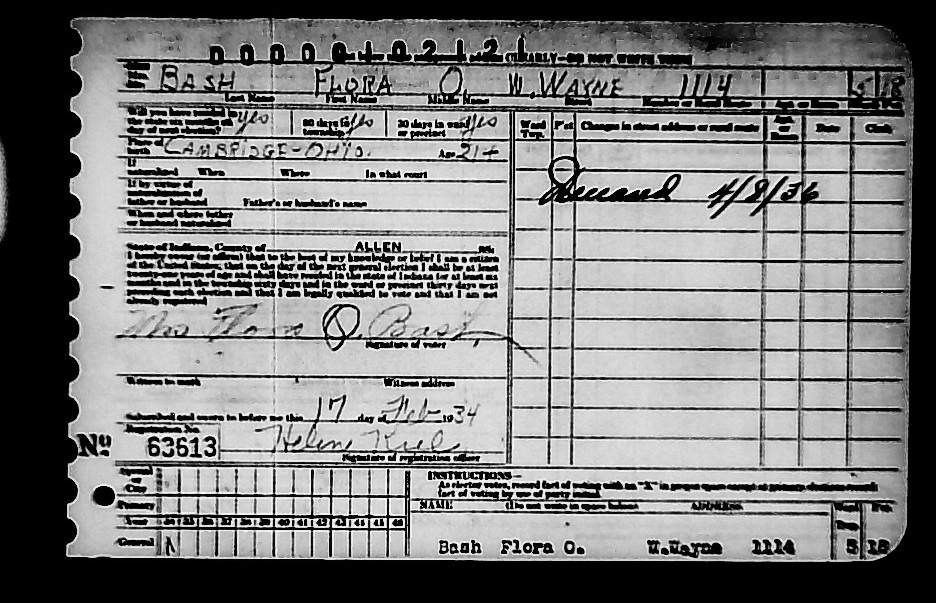 D 0 0 0 0 0 1 0 2 1 2 1 CLEARLY—DO NOT WRITE
BASH FLORA O. W. WAYNE 1114 5 18
Last Name First Name Middle Name Street Number or Rural Route Apt. or Room
Will you have resided in the state six months on day of next election? yes 60 days in township? yes 30 days in ward or precinct yes
Ward Twp. P'ct Changes in street address or rural route Apt. or Room Date Clerk
Place of birth CAMBRIDGE-OHIO. Age 21+
If naturalized When Where In what court
Demand 4/8/36
If by virtue of naturalization of father or husband Father's or husband's name
When and where father or husband naturalized
State of Indiana, County of ALLEN ss.
I hereby swear (or affirm) that to the best of my knowledge or belief I am a citizen
of the United States, that on the day of the next general election I shall be at least
twenty-one years of age and shall have resided in the state of Indiana for at least six
months and in the township sixty days and in the ward or precinct thirty days next
preceding such election and that I am legally qualified to vote and that I am not
already registered
Mrs Flora O. Bash,
Signature of voter
Witness to mark Witness address
Subscribed and sworn to before me this 17 day of Feb 1934
Registration No.
No 63613 Helene
Signature of registration officer
Special or City
Primary
Year 34 35 36 37 38 39 40 41 42 43 44 45 46
General
INSTRUCTIONS—
As elector votes, record fact of voting with an "X" in proper space except at primary elections record
fact of voting by use of party initial.
NAME (Do not write in space below) ADDRESS Ward Twp. Pct.
Bash Flora O. W.Wayne 1114 5 18